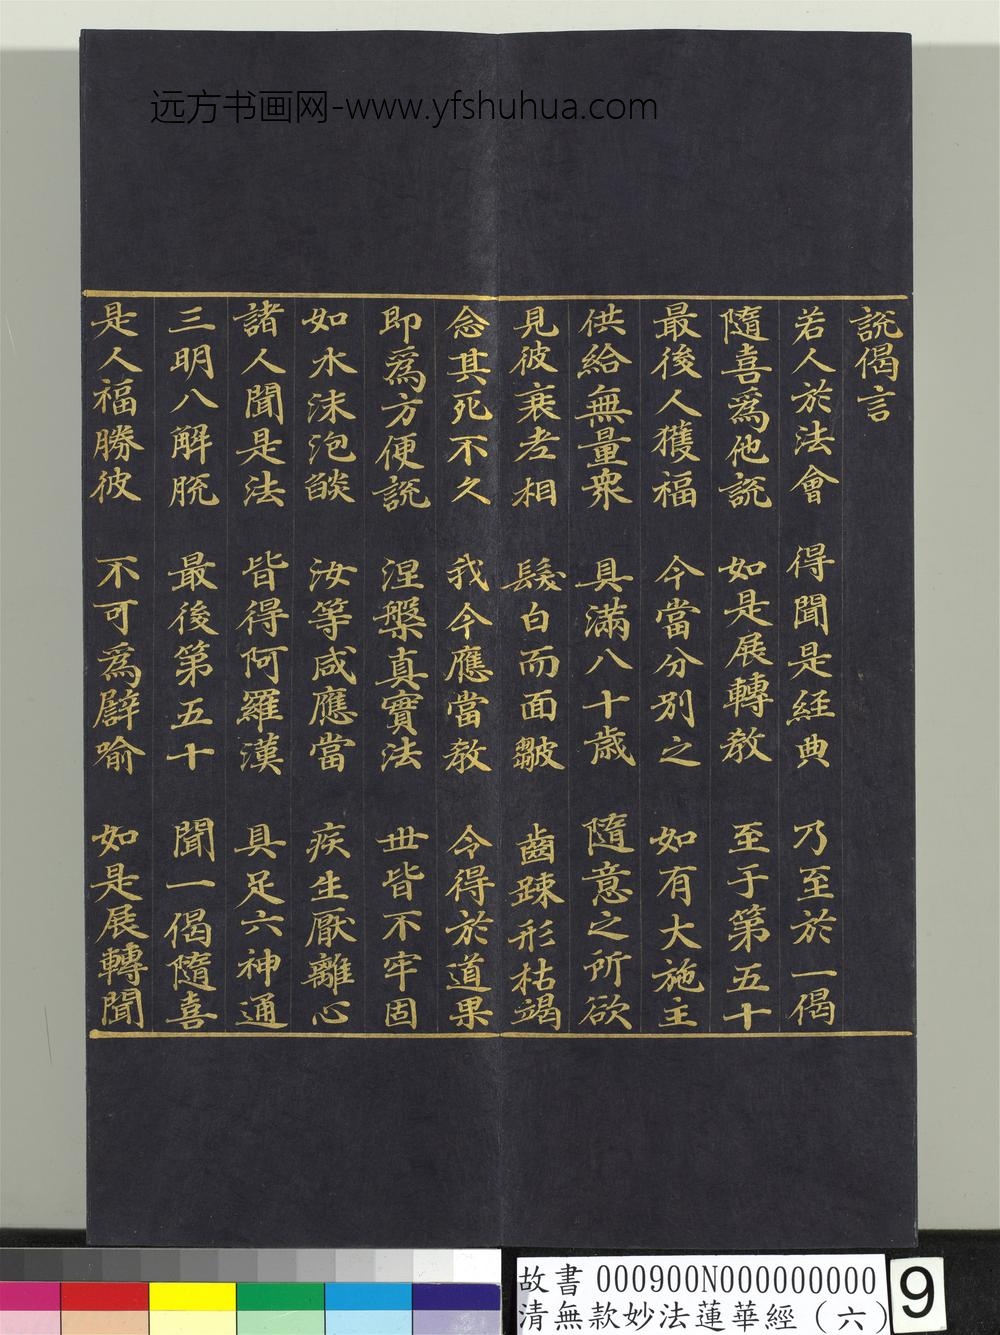 远方书画网-www.yfshuhua.com
說偈言
若人於法會 得聞是經典 乃至於一偈
隨喜為他說 如是展轉教 至于第五十
最後人獲福 今當分別之 如有大施主
供給無量衆 具滿八十歲 隨意之所欲
見彼衰老相 髮白而面皺 齒踈形枯竭
念其死不久 我今應當教 令得於道果
即為方便說 涅槃真實法 世皆不牢固
如水沫泡燄 汝等咸應當 疾生厭離心
諸人聞是法 皆得阿羅漢 具足六神通
三明八解脫 最後第五十 聞一偈隨喜
是人福勝彼 不可為譬喻 如是展轉聞
故書 000900N000000000
清無款妙法蓮華經（六）
9